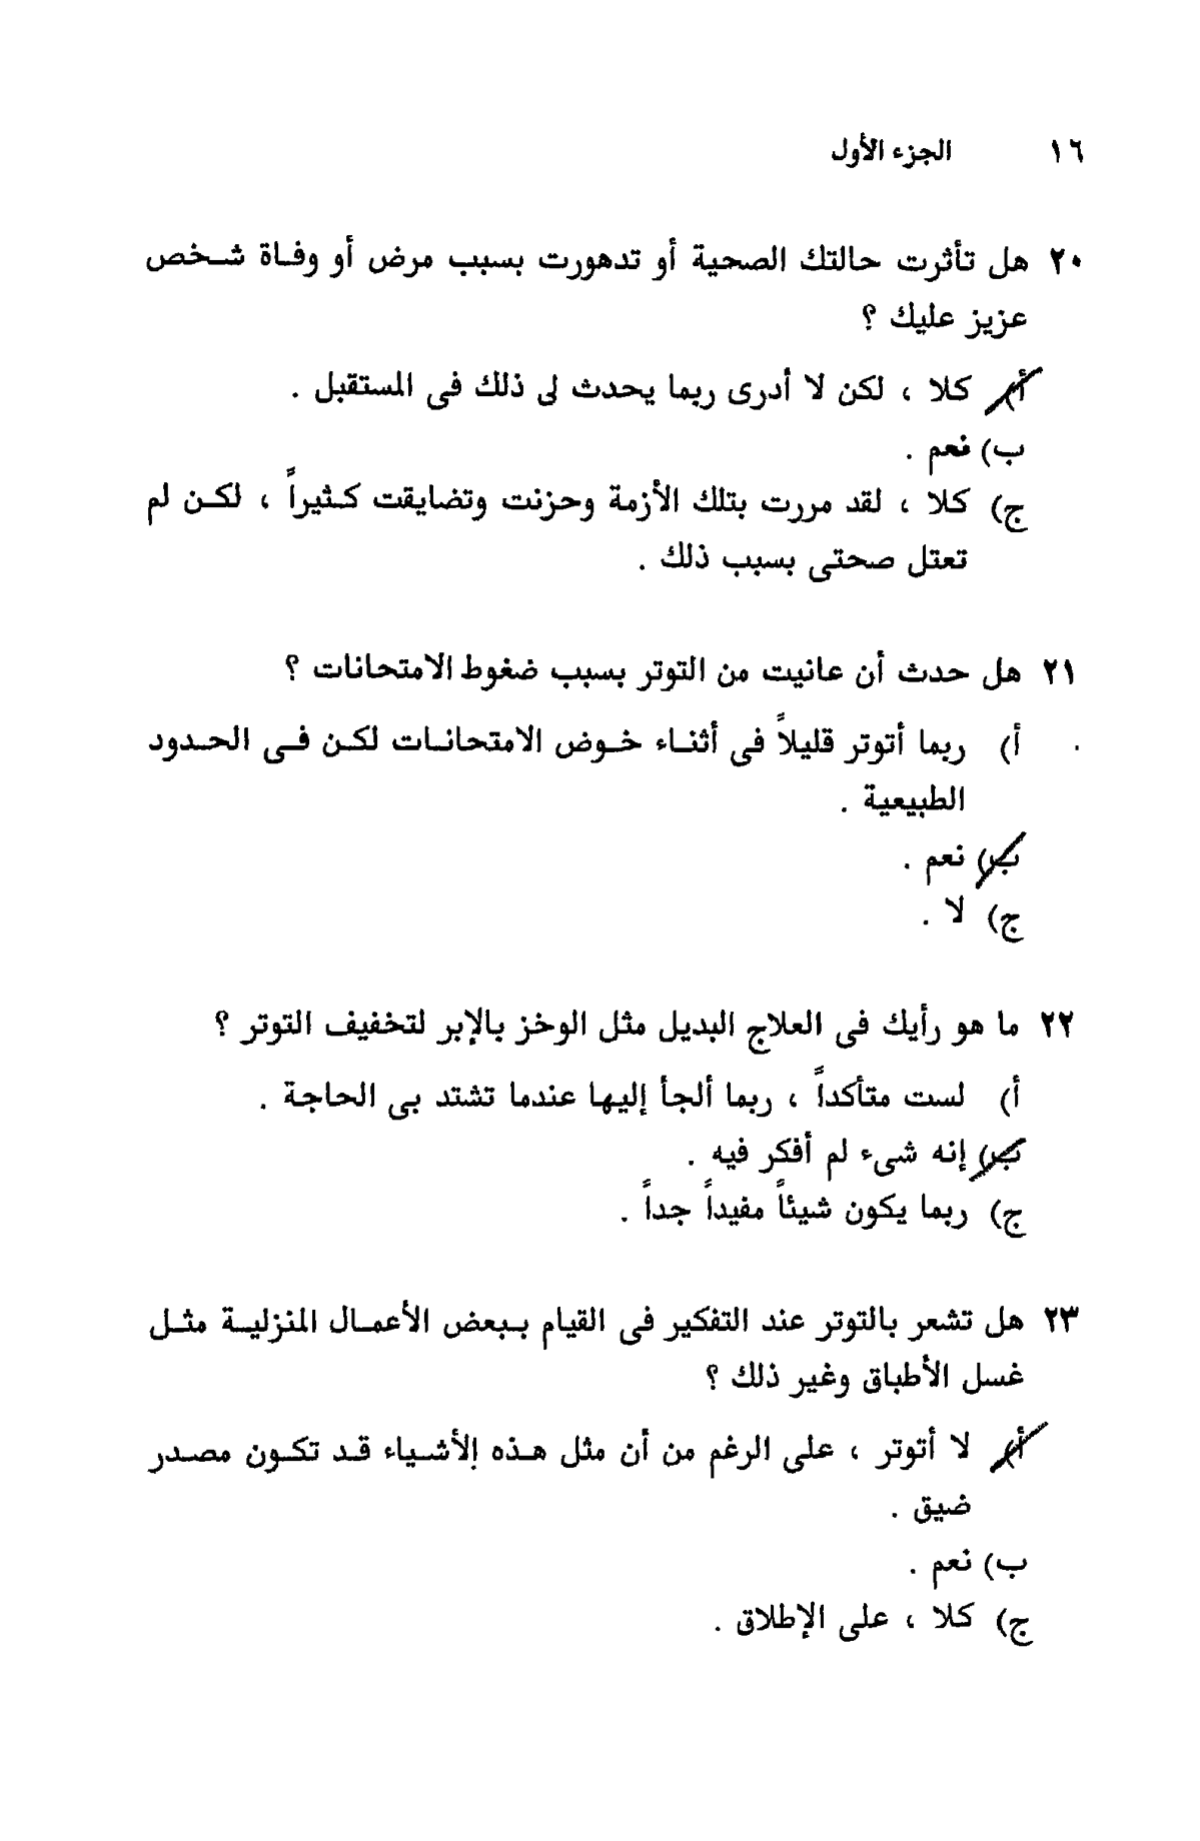 ١٦ الجزء الأول
٢٠ هل تأثرت حالتك الصحية أو تدهورت بسبب مرض أو وفـاة شـخص
عزيز عليك ؟
أ) كلا ، لكن لا أدرى ربما يحدث لى ذلك فى المستقبل .
ب) نعم .
ج) كلا ، لقد مررت بتلك الأزمة وحزنت وتضايقت كـثيراً ، لكـن لم
تعتل صحتى بسبب ذلك .
٢١ هل حدث أن عانيت من التوتر بسبب ضغوط الامتحانات ؟
أ) ربما أتوتر قليلاً فى أثنـاء خـوض الامتحانـات لكـن فـى الحـدود
الطبيعية .
ب) نعم .
ج) لا .
٢٢ ما هو رأيك فى العلاج البديل مثل الوخز بالإبر لتخفيف التوتر ؟
أ) لست متأكداً ، ربما ألجأ إليها عندما تشتد بى الحاجة .
ب) إنه شىء لم أفكر فيه .
ج) ربما يكون شيئاً مفيداً جداً .
٢٣ هل تشعر بالتوتر عند التفكير فى القيام بـبعض الأعمـال المنزليـة مثـل
غسل الأطباق وغير ذلك ؟
أ) لا أتوتر ، على الرغم من أن مثل هـذه الأشـياء قـد تكـون مصـدر
ضيق .
ب) نعم .
ج) كلا ، على الإطلاق .